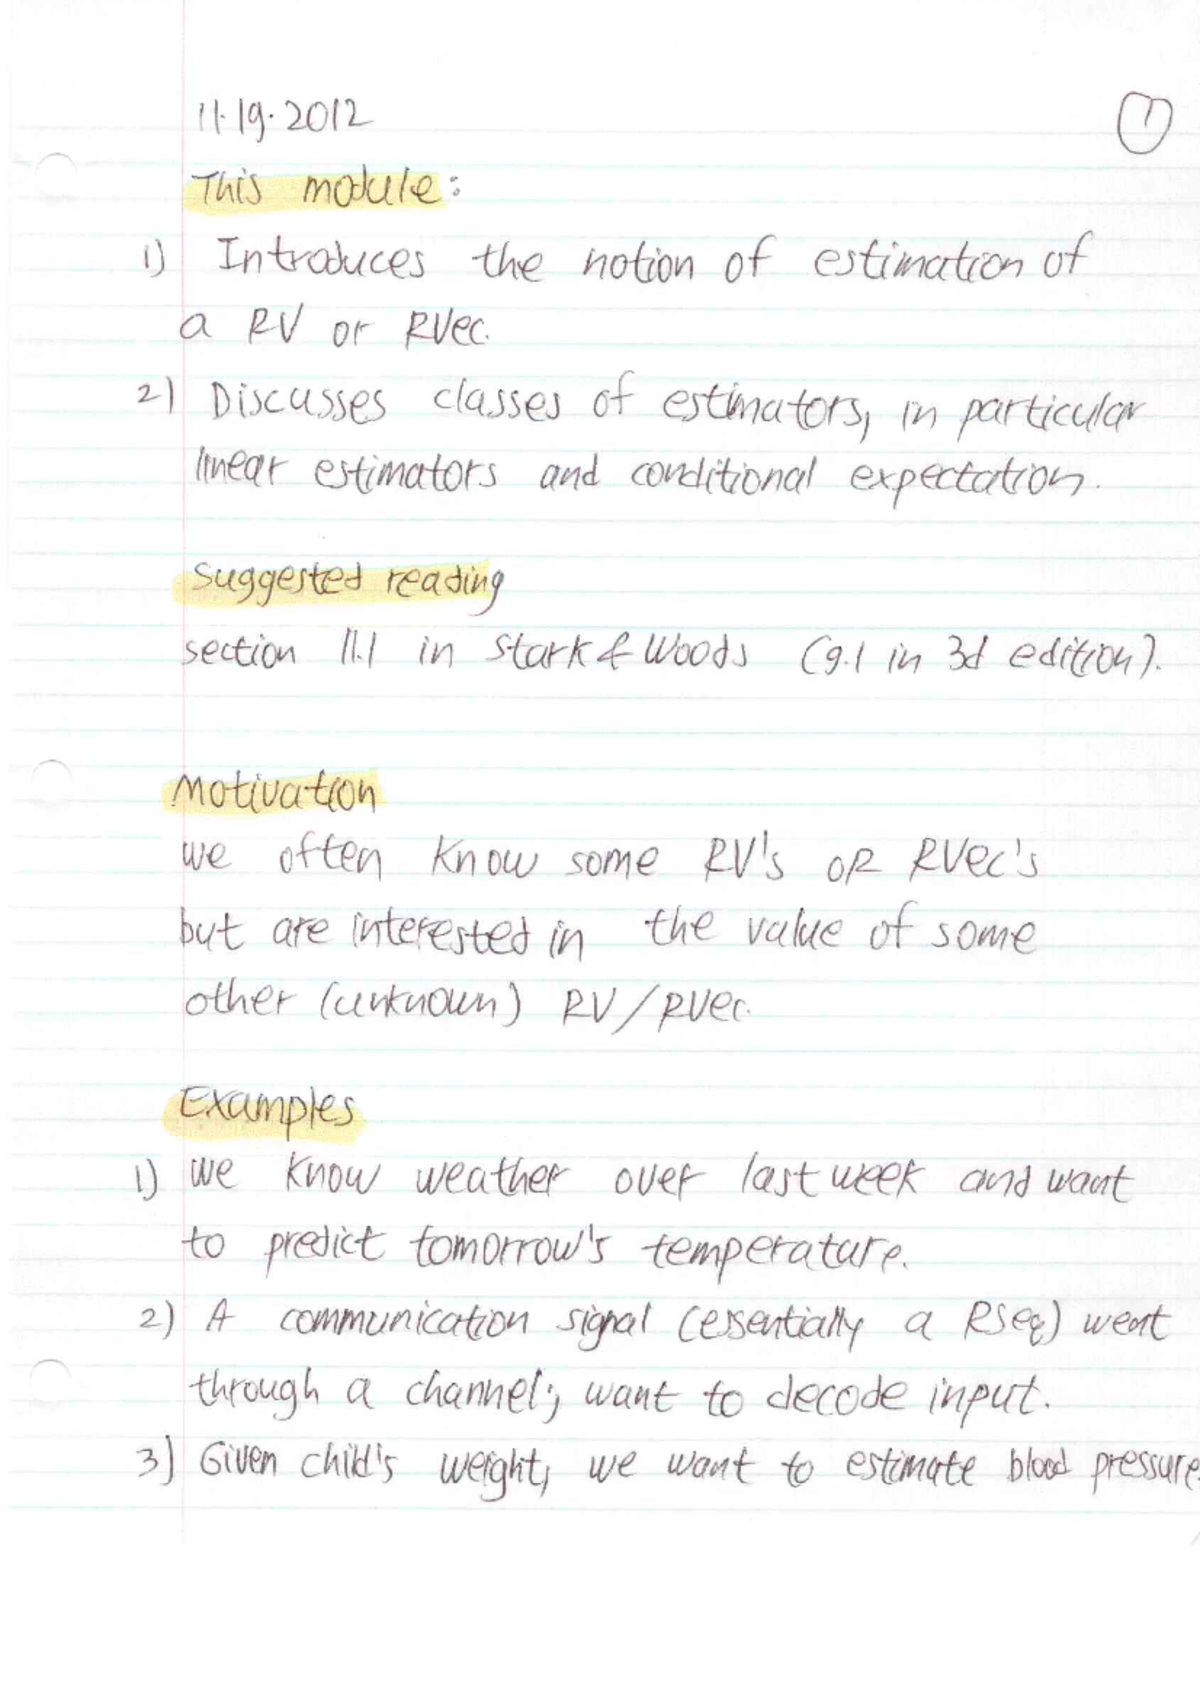 11.19.2012
1
This module:
1) Introduces the notion of estimation of
a RV or RVec.
2) Discusses classes of estimators, in particular
linear estimators and conditional expectation.
Suggested reading
section 11.1 in Stark & Woods (9.1 in 3d edition).
Motivation
we often know some RV's OR RVec's
but are interested in the value of some
other (unknown) RV/RVec.
Examples
1) we know weather over last week and want
to predict tomorrow's temperature.
2) A communication signal (essentially a RSeq) went
through a channel; want to decode input.
3) Given child's weight, we want to estimate blood pressure.